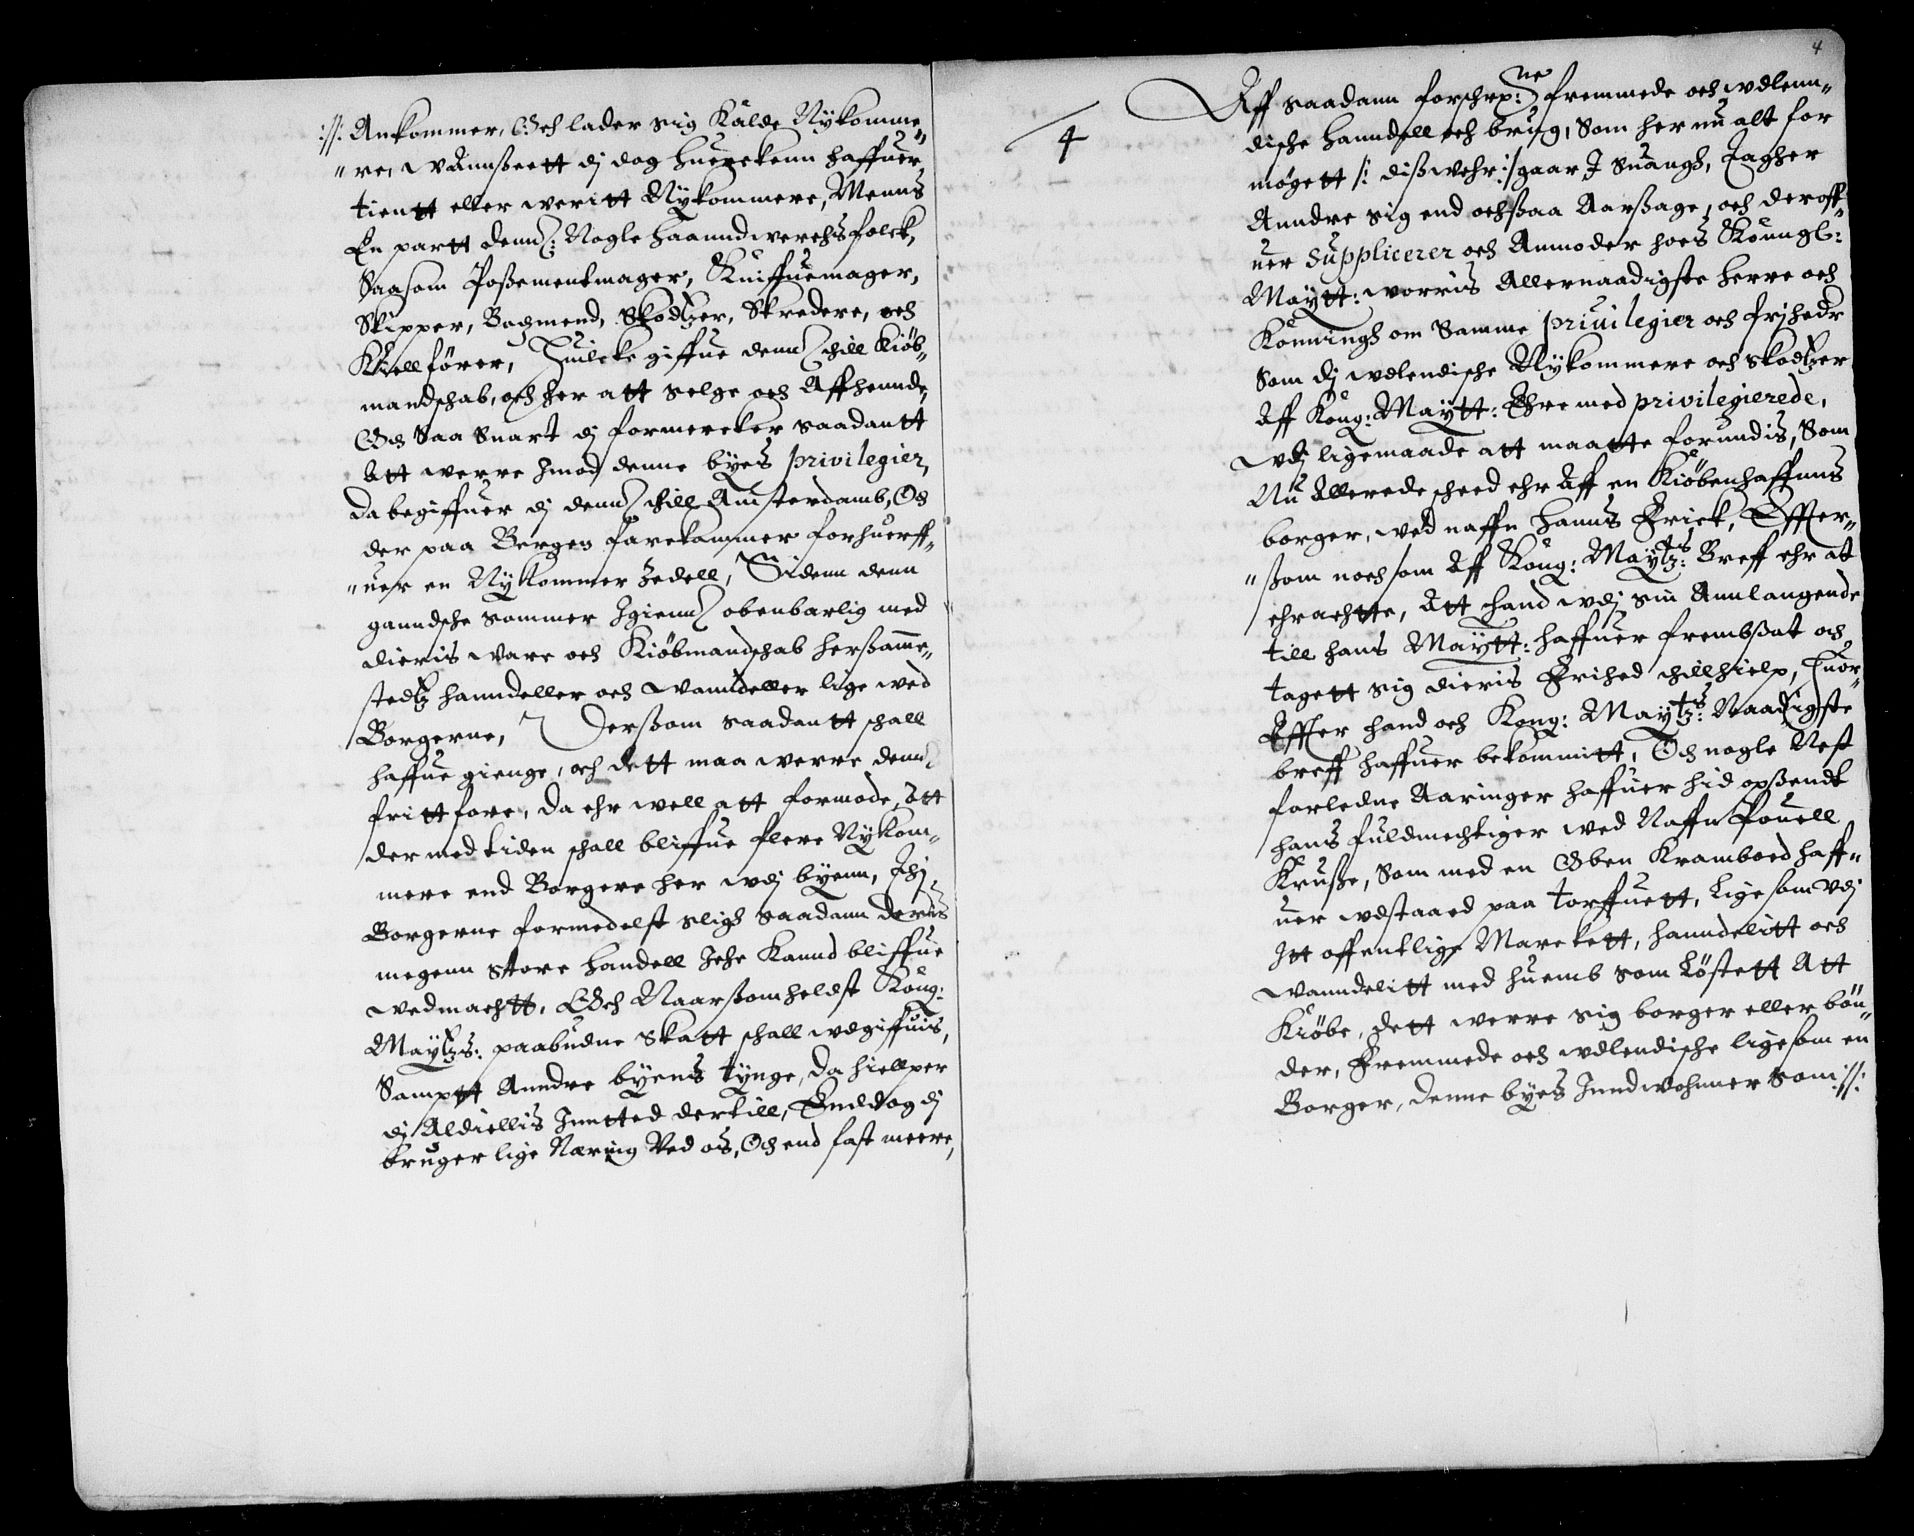 :/: Ankommer, Och lader sig Kalde Nykomme„
„re, Uannßeett dj dog huerckenn haffuer
tientt eller weritt Nykommere, Menns
En partt denn: Nogle Haanndwerchsfolck,
Saasom Poßementmager, Kniffuemager,
Skipper, Bagmend, Skodtzer, Skredere, och
Kiellförer, Huilcke giffue denn thill Kiöb„
mandschab, och her att selge och Affhennde,
Och Saa Snart dj formercker saadantt
Att werre Jmod denne byes privilegier,
da begiffuer dj denn thill Amsterdamb, Och
der paa Bergen farekammer forhuerff„
„uer en Nykommer Zedell, Sidenn denn
ganndsche sommer Igienn obenbarlig med
dieris ware och Kiöbmandschab herßamme„
stedtz hanndeller och wanndeller lige wed
Borgerne, Derßom saadantt schall
haffue gienge, och dett maa werre denn
fritt fore, da ehr well att formode, Att
der med tiden schall bliffue flere Nykom„
mere end Borgere her wdj byenn, Thj
Borgerne formedelst sligh saadann deris
megenn store Handell Iche Kannd bliffue
wedmachtt, Och Naarßomheldst Kong:
Mayttz: paabudne Skatt schall wdgiffuis,
Sampt Anndre byens tynge, da hiellper
dj Aldiellis Inntted dertill, Enddog dj
bruger lige Næring Ved os, Och end fast meere,

4
4
Aff saadann forschrp:ne fremmede och wdlenn„
dische hanndell och brug, Som her nu alt for
mögett /: dißwehr :/ gaar J Suangh, Tagher
Anndre sig end ochßaa Aarßage, och deroff„
uer Supplicerer och Anmoder hoes Kounngl:
Maytt: worris Allernaadigste Herre och
Konningh om Samme privilegier och frihedr
Som dj wdlendische Nykommere och skodtzer
Aff Kong: Maytt: Ehre med privilegierede,
Wdj ligemaade att maatte forundis, Som
Nu Allerede scheed ehr Aff en Kiöbenhaffuns
borger, wed naffn Hanns Frick, Effter„
„ßom noch som Aff Kong: Mayttz: Breff ehr att
ehrachtte, Att hand wdj sin Annlangende
till hans Maytt: haffuer frembßat och
tagett sig dieris Frihed thillhielp, Huor„
Effter hand och Kong: Mayttz: Naadigste
breff haffuer bekommitt, Och nogle Nest
forledne Aaringer haffuer hid opßendt
hans fuldmechtiger wed Naffn Pouell
Kruße, Som med en Oben Kramboed haff„
uer wdstaaed paa Torffuett, Lige som Vdj
Itt offentlige Marckett, hanndelitt och
wanndelitt med huemb som Löstett Att
Kiöbe, dett werre sig borger eller bön„
der, Fremmede och wdlendische ligesom en
Borger, denne byes Inndwohnner Som :/: